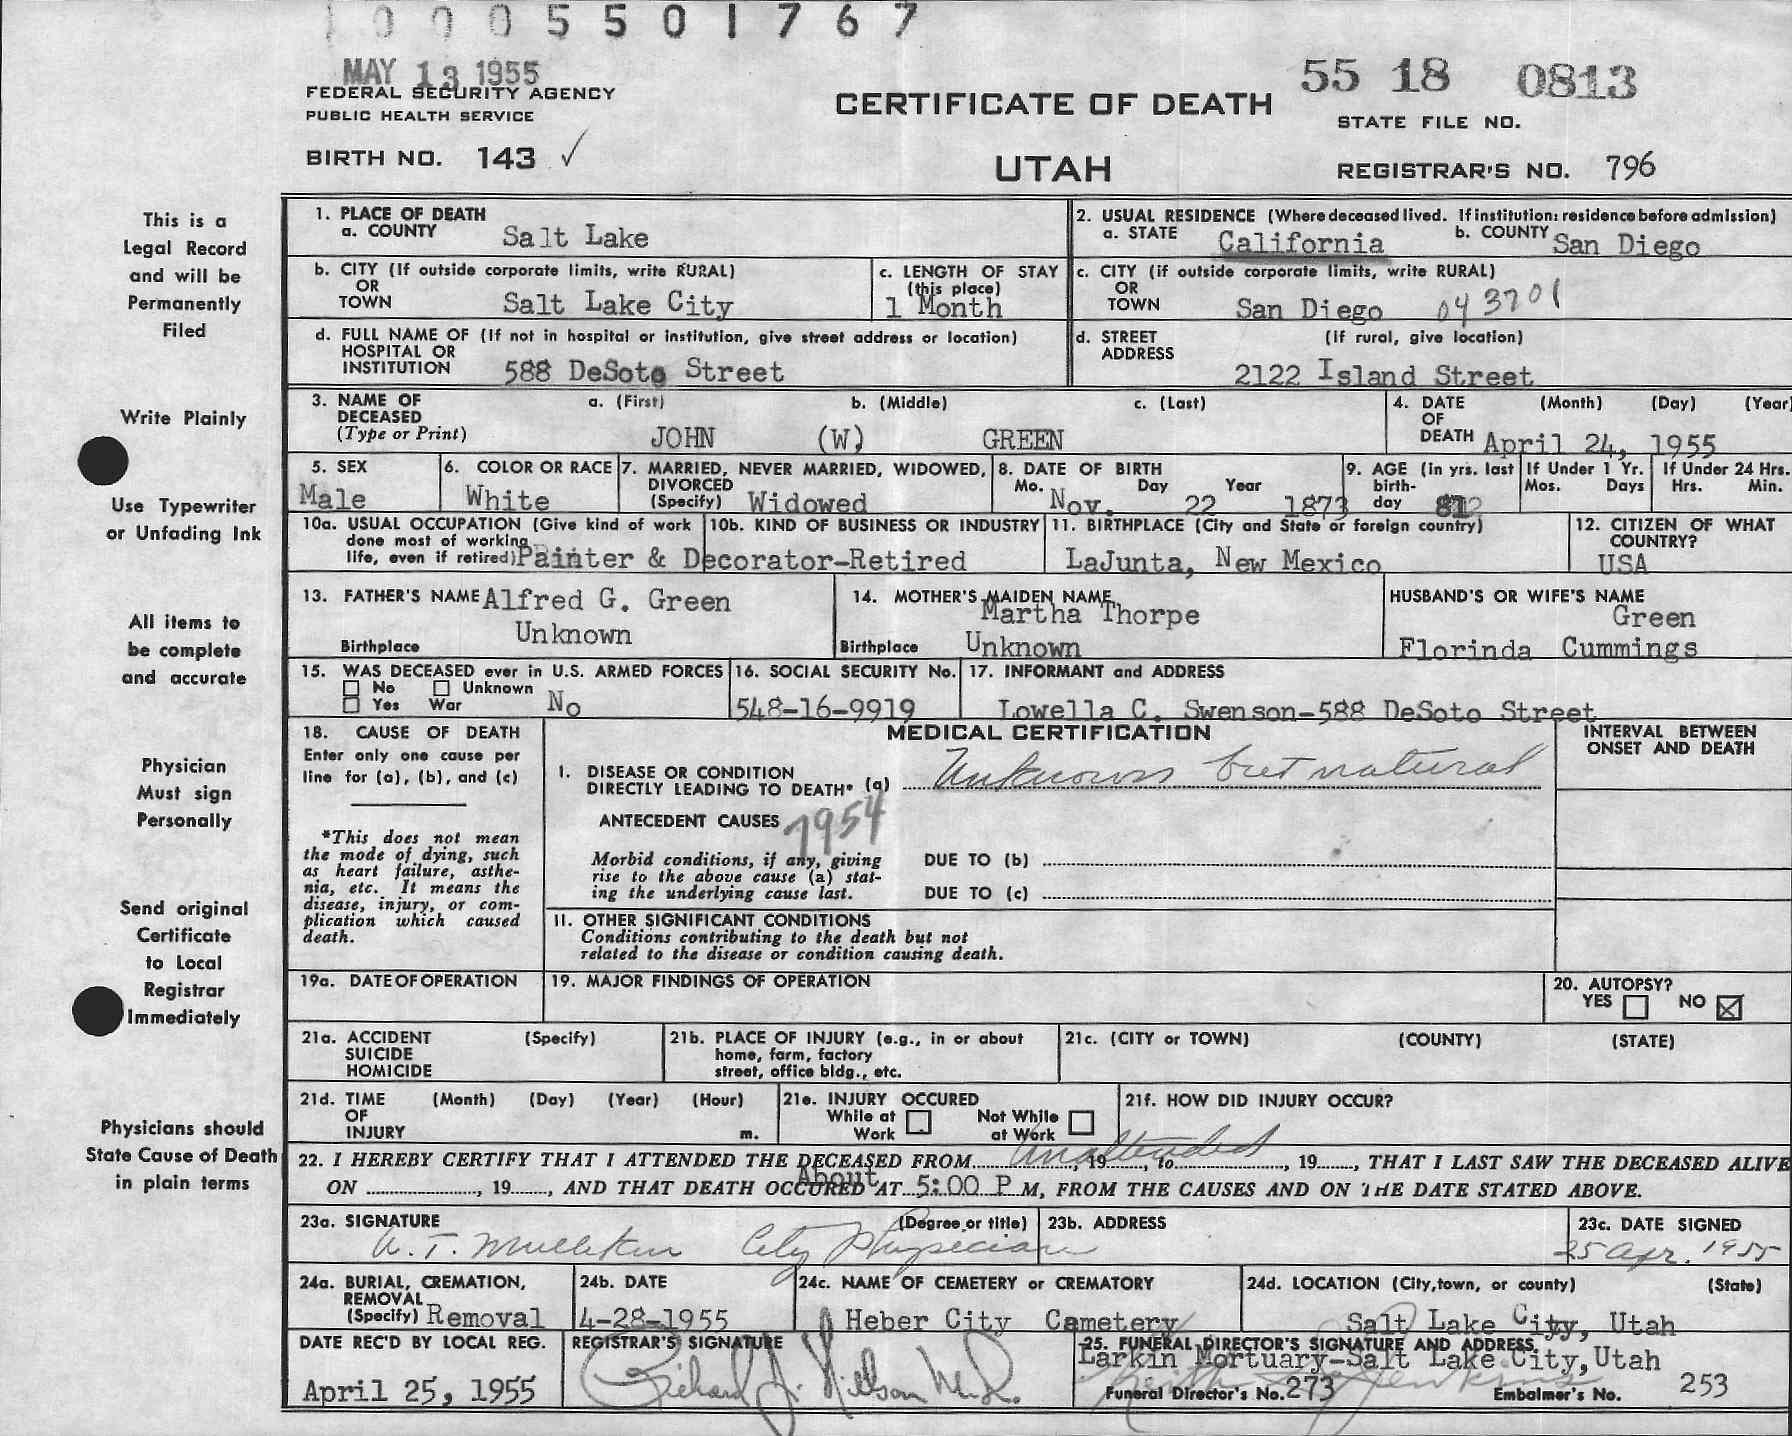 1 0 0 0 5 5 0 1 7 6 7
MAY 13 1955
FEDERAL SECURITY AGENCY
PUBLIC HEALTH SERVICE
BIRTH NO. 143 ✓
CERTIFICATE OF DEATH
UTAH
55 18 0813
STATE FILE NO.
REGISTRAR'S NO. 796
This is a
Legal Record
and will be
Permanently
Filed
Write Plainly
Use Typewriter
or Unfading Ink
All items to
be complete
and accurate
Physician
Must sign
Personally
Send original
Certificate
to Local
Registrar
Immediately
Physicians should
State Cause of Death
in plain terms
1. PLACE OF DEATH
a. COUNTY Salt Lake
2. USUAL RESIDENCE (Where deceased lived. If institution: residence before admission)
a. STATE California b. COUNTY San Diego
b. CITY (If outside corporate limits, write RURAL)
OR
TOWN Salt Lake City
c. LENGTH OF STAY
(this place)
1 Month
c. CITY (if outside corporate limits, write RURAL)
OR
TOWN San Diego 043701
d. FULL NAME OF (If not in hospital or institution, give street address or location)
HOSPITAL OR
INSTITUTION 588 DeSoto Street
d. STREET (If rural, give location)
ADDRESS
2122 Island Street
3. NAME OF a. (First) b. (Middle) c. (Last)
DECEASED
(Type or Print) JOHN (W) GREEN
4. DATE (Month) (Day) (Year)
OF
DEATH April 24, 1955
5. SEX
Male
6. COLOR OR RACE
White
7. MARRIED, NEVER MARRIED, WIDOWED,
DIVORCED
(Specify) Widowed
8. DATE OF BIRTH
Mo. Day Year
Nov. 22 1873
9. AGE (In yrs. last
birth-
day 81
If Under 1 Yr.
Mos. Days
If Under 24 Hrs.
Hrs. Min.
10a. USUAL OCCUPATION (Give kind of work
done most of working
life, even if retired) Painter & Decorator-Retired
10b. KIND OF BUSINESS OR INDUSTRY
11. BIRTHPLACE (City and State or foreign country)
LaJunta, New Mexico
12. CITIZEN OF WHAT
COUNTRY?
USA
13. FATHER'S NAME Alfred G. Green
Birthplace Unknown
14. MOTHER'S MAIDEN NAME
Martha Thorpe
Birthplace Unknown
HUSBAND'S OR WIFE'S NAME
Green
Florinda Cummings
15. WAS DECEASED ever in U.S. ARMED FORCES
No Unknown
Yes War No
16. SOCIAL SECURITY No.
548-16-9919
17. INFORMANT and ADDRESS
Lowella C. Swenson-588 DeSoto Street
18. CAUSE OF DEATH
Enter only one cause per
line for (a), (b), and (c)
*This does not mean
the mode of dying, such
as heart failure, asthe-
nia, etc. It means the
disease, injury, or com-
plication which caused
death.
MEDICAL CERTIFICATION
INTERVAL BETWEEN
ONSET AND DEATH
I. DISEASE OR CONDITION
DIRECTLY LEADING TO DEATH* (a) Unknown but natural
ANTECEDENT CAUSES 7954
Morbid conditions, if any, giving
rise to the above cause (a) stat-
ing the underlying cause last.
DUE TO (b)
DUE TO (c)
II. OTHER SIGNIFICANT CONDITIONS
Conditions contributing to the death but not
related to the disease or condition causing death.
19a. DATE OF OPERATION
19. MAJOR FINDINGS OF OPERATION
20. AUTOPSY?
YES NO ☒
21a. ACCIDENT (Specify)
SUICIDE
HOMICIDE
21b. PLACE OF INJURY (e.g., in or about
home, farm, factory
street, office bldg., etc.
21c. (CITY or TOWN) (COUNTY) (STATE)
21d. TIME (Month) (Day) (Year) (Hour)
OF
INJURY m.
21e. INJURY OCCURED
While at Not While
Work at Work
21f. HOW DID INJURY OCCUR?
22. I HEREBY CERTIFY THAT I ATTENDED THE DECEASED FROM Unattended, 19......, to............, 19......, THAT I LAST SAW THE DECEASED ALIVE
About
ON ............, 19......, AND THAT DEATH OCCURED AT 5:00 P M, FROM THE CAUSES AND ON THE DATE STATED ABOVE.
23a. SIGNATURE (Degree or title)
City Physician
23b. ADDRESS
23c. DATE SIGNED
25 Apr. 1955
24a. BURIAL, CREMATION,
REMOVAL
(Specify) Removal
24b. DATE
4-28-1955
24c. NAME OF CEMETERY or CREMATORY
Heber City Cemetery
24d. LOCATION (City,town, or county) (State)
Salt Lake City, Utah
DATE REC'D BY LOCAL REG.
April 25, 1955
REGISTRAR'S SIGNATURE
Richard
25. FUNERAL DIRECTOR'S SIGNATURE AND ADDRESS.
Larkin Mortuary-Salt Lake City, Utah
Funeral Director's No. 273 Embalmer's No. 253